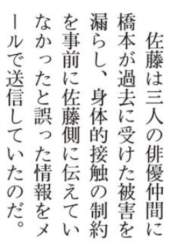 佐藤は三人の俳優仲間に
橋本が過去に受けた被害を
漏らし、身体的接触の制約
を事前に佐藤側に伝えてい
なかったと誤った情報をメ
ールで送信していたのだ。